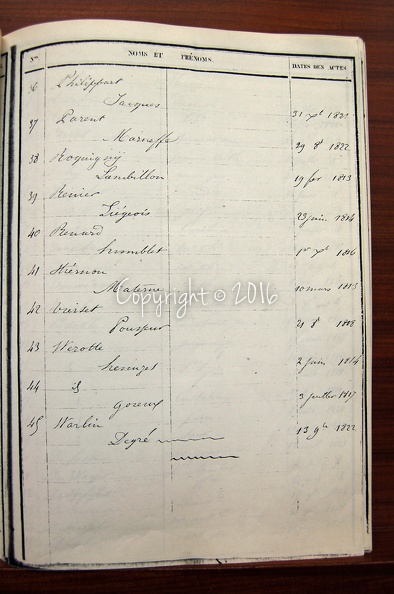 Nos. NOMS ET PRÉNOMS. DATES DES ACTES
36 Philippart
Jacques 31 xbre 1821
37 Parent
Marneffe 29 8bre 1822
38 Roquigny
Lambillon 19 fer 1813
39 Renier
Liégeois 23 juin 1814
40 Renard
humblet 1er xbre 1816
41 Stiernon
Materne 10 mars 1815
42 
Pousseur 21 8bre 1818
43 Werotte
henuzet 2 juin 1814
44 id
Goreux 3 juillet 1817
45 Warlin
Degré 13 9bre 1822
Copyright © 2016